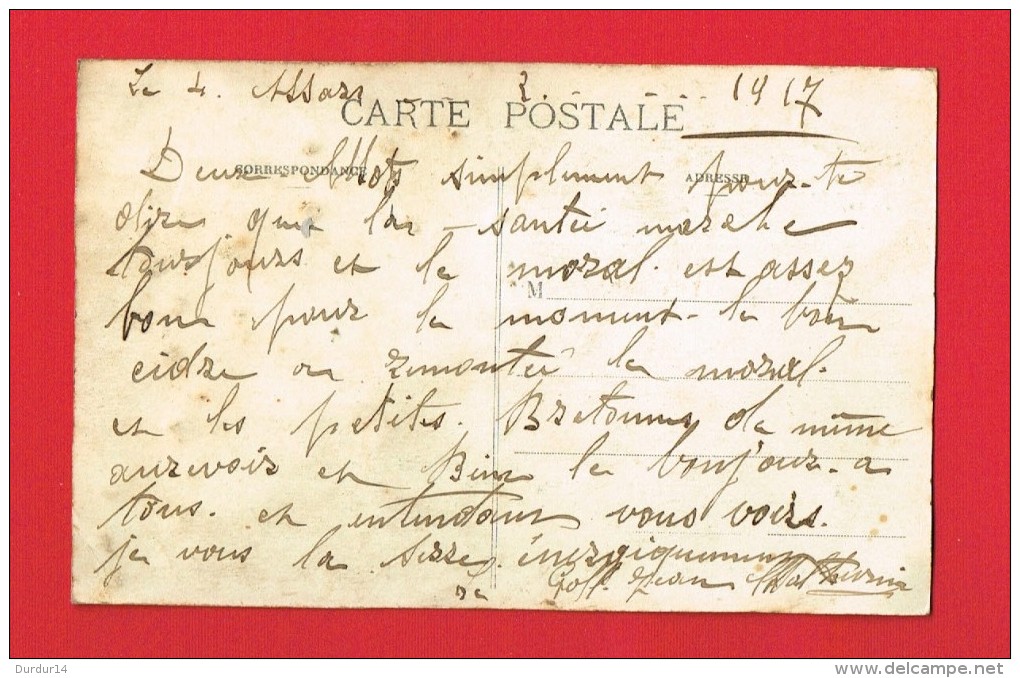 Le 4. Mars 1917
CARTE POSTALE
CORRESPONDANCE
ADRESSE
Deux Mots simplement pour te
dire que la santé marche
toujours et le moral. est assez
M
bon pour le moment - le bon
cidre on remonté le moral.
et les petites. Bretonnes de même
aurevoir et Bien le bonjour - a
tous. et entendant vous voir.
je vous la serre énergiquement
Jean Mathurin
Durdur14
www.delcampe.net